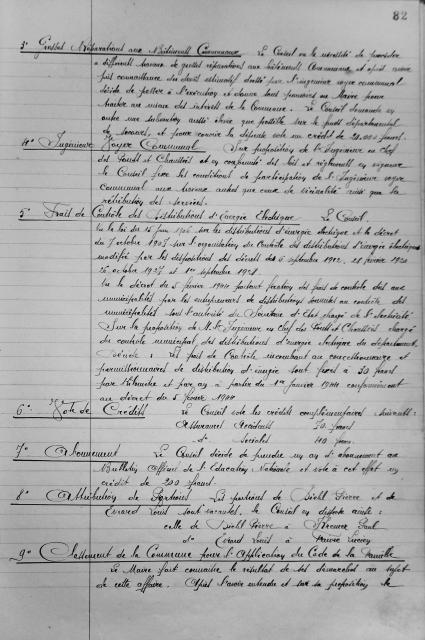 82
3° Grosses Réparations aux Bâtiments Communaux Le Conseil vu la nécessité de procéder
à différents travaux de grosses réparations aux bâtiments Communaux et après avoir
pris connaissance du devis estimatif dressé par l'ingénieur voyer communal
décide de passer à l'exécution et donne tous pouvoirs au Maire pour
traiter au mieux des intérêts de la Commune. Le Conseil demande en
outre une subvention aussi élevée que possible sur le fonds départemental
de secours, et pour couvrir la dépense vote un crédit de 20.000 francs.
4° Ingénieur Voyer Communal Sur proposition de l'Ingénieur en Chef
des Ponts et Chaussées et en conformité des lois et règlements en vigueur
le Conseil fixe les conditions de participation de l'Ingénieur voyer
Communal aux travaux autres que ceux de vicinalité ainsi que la
rétribution des services.
5° Frais de Contrôle des Distributions d'Energie Electrique Le Conseil
Vu la loi du 15 juin 1906 sur les distributions d'énergie électrique et le décret
du 7 octobre 1907 sur l'organisation du Contrôle des distributions d'énergie électrique
modifié par les dispositions des décrets des 6 septembre 1912, 28 février 1920
26 octobre 1927 et 1er septembre 1928.
Vu le décret du 5 février 1944 portant fixation des frais de contrôle dus aux
municipalités par les entrepreneurs de distributions soumises au contrôle des
municipalités sous l'autorité du Secrétaire d'Etat chargé de l'électricité
Sur la proposition de M. l'Ingénieur en Chef des Ponts et Chaussées chargé
du contrôle municipal des distributions d'énergie électrique du département
Décide : Les frais de Contrôle incombant aux concessionnaires et
permissionnaires de distribution d'énergie sont fixés à 30 francs
par Kilomètre et par an à partir du 1er janvier 1944 conformément
au décret du 5 février 1944
6° Vote de Crédits Le Conseil vote les crédits complémentaires suivants :
Assurances Accidents 50 francs
d° Sociales 110 francs.
7° Abonnement Le Conseil décide de prendre un an d'abonnement au
Bulletin Officiel de l'Education Nationale et vote à cet effet un
crédit de 200 francs.
8° Attribution de Portions Les portions de Pierre et de
Louis sont vacantes, le Conseil en dispose ainsi :
celle de Pierre à Paul
d° Louis à
9° Classement de la Commune pour l'Application du Code de la Famille
Le Maire fait connaître le résultat de ses démarches au sujet
de cette affaire. Après l'avoir entendu et sur sa proposition le